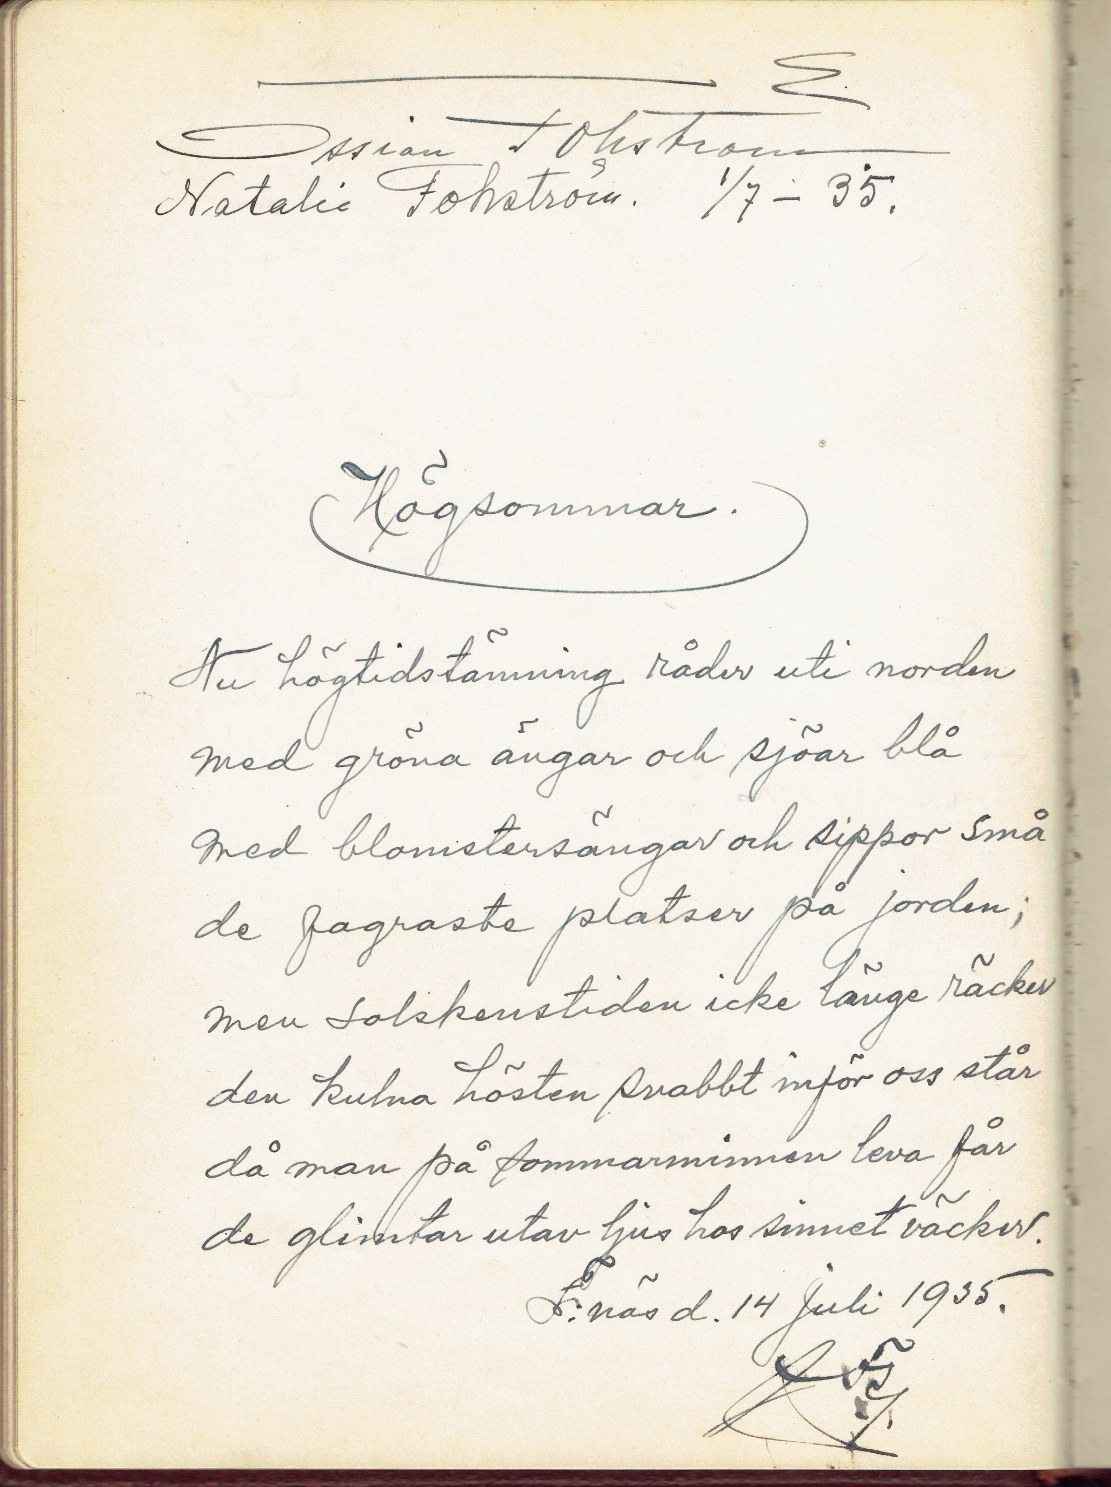 Ossian Fohström
Natalie Fohström. 1/7 – 35.
Högsommar.
Nu högtidstämning råder uti norden
med gröna ängar och sjöar blå
med blomstersängar och sippor små
de fagraste platser på jorden;
men solskenstiden icke länge räcker
den kulna hösten snabbt inför oss står
då man på sommarminnen leva får
de glimtar utav ljus hos sinnet väcker.
näs d. 14 juli 1935.